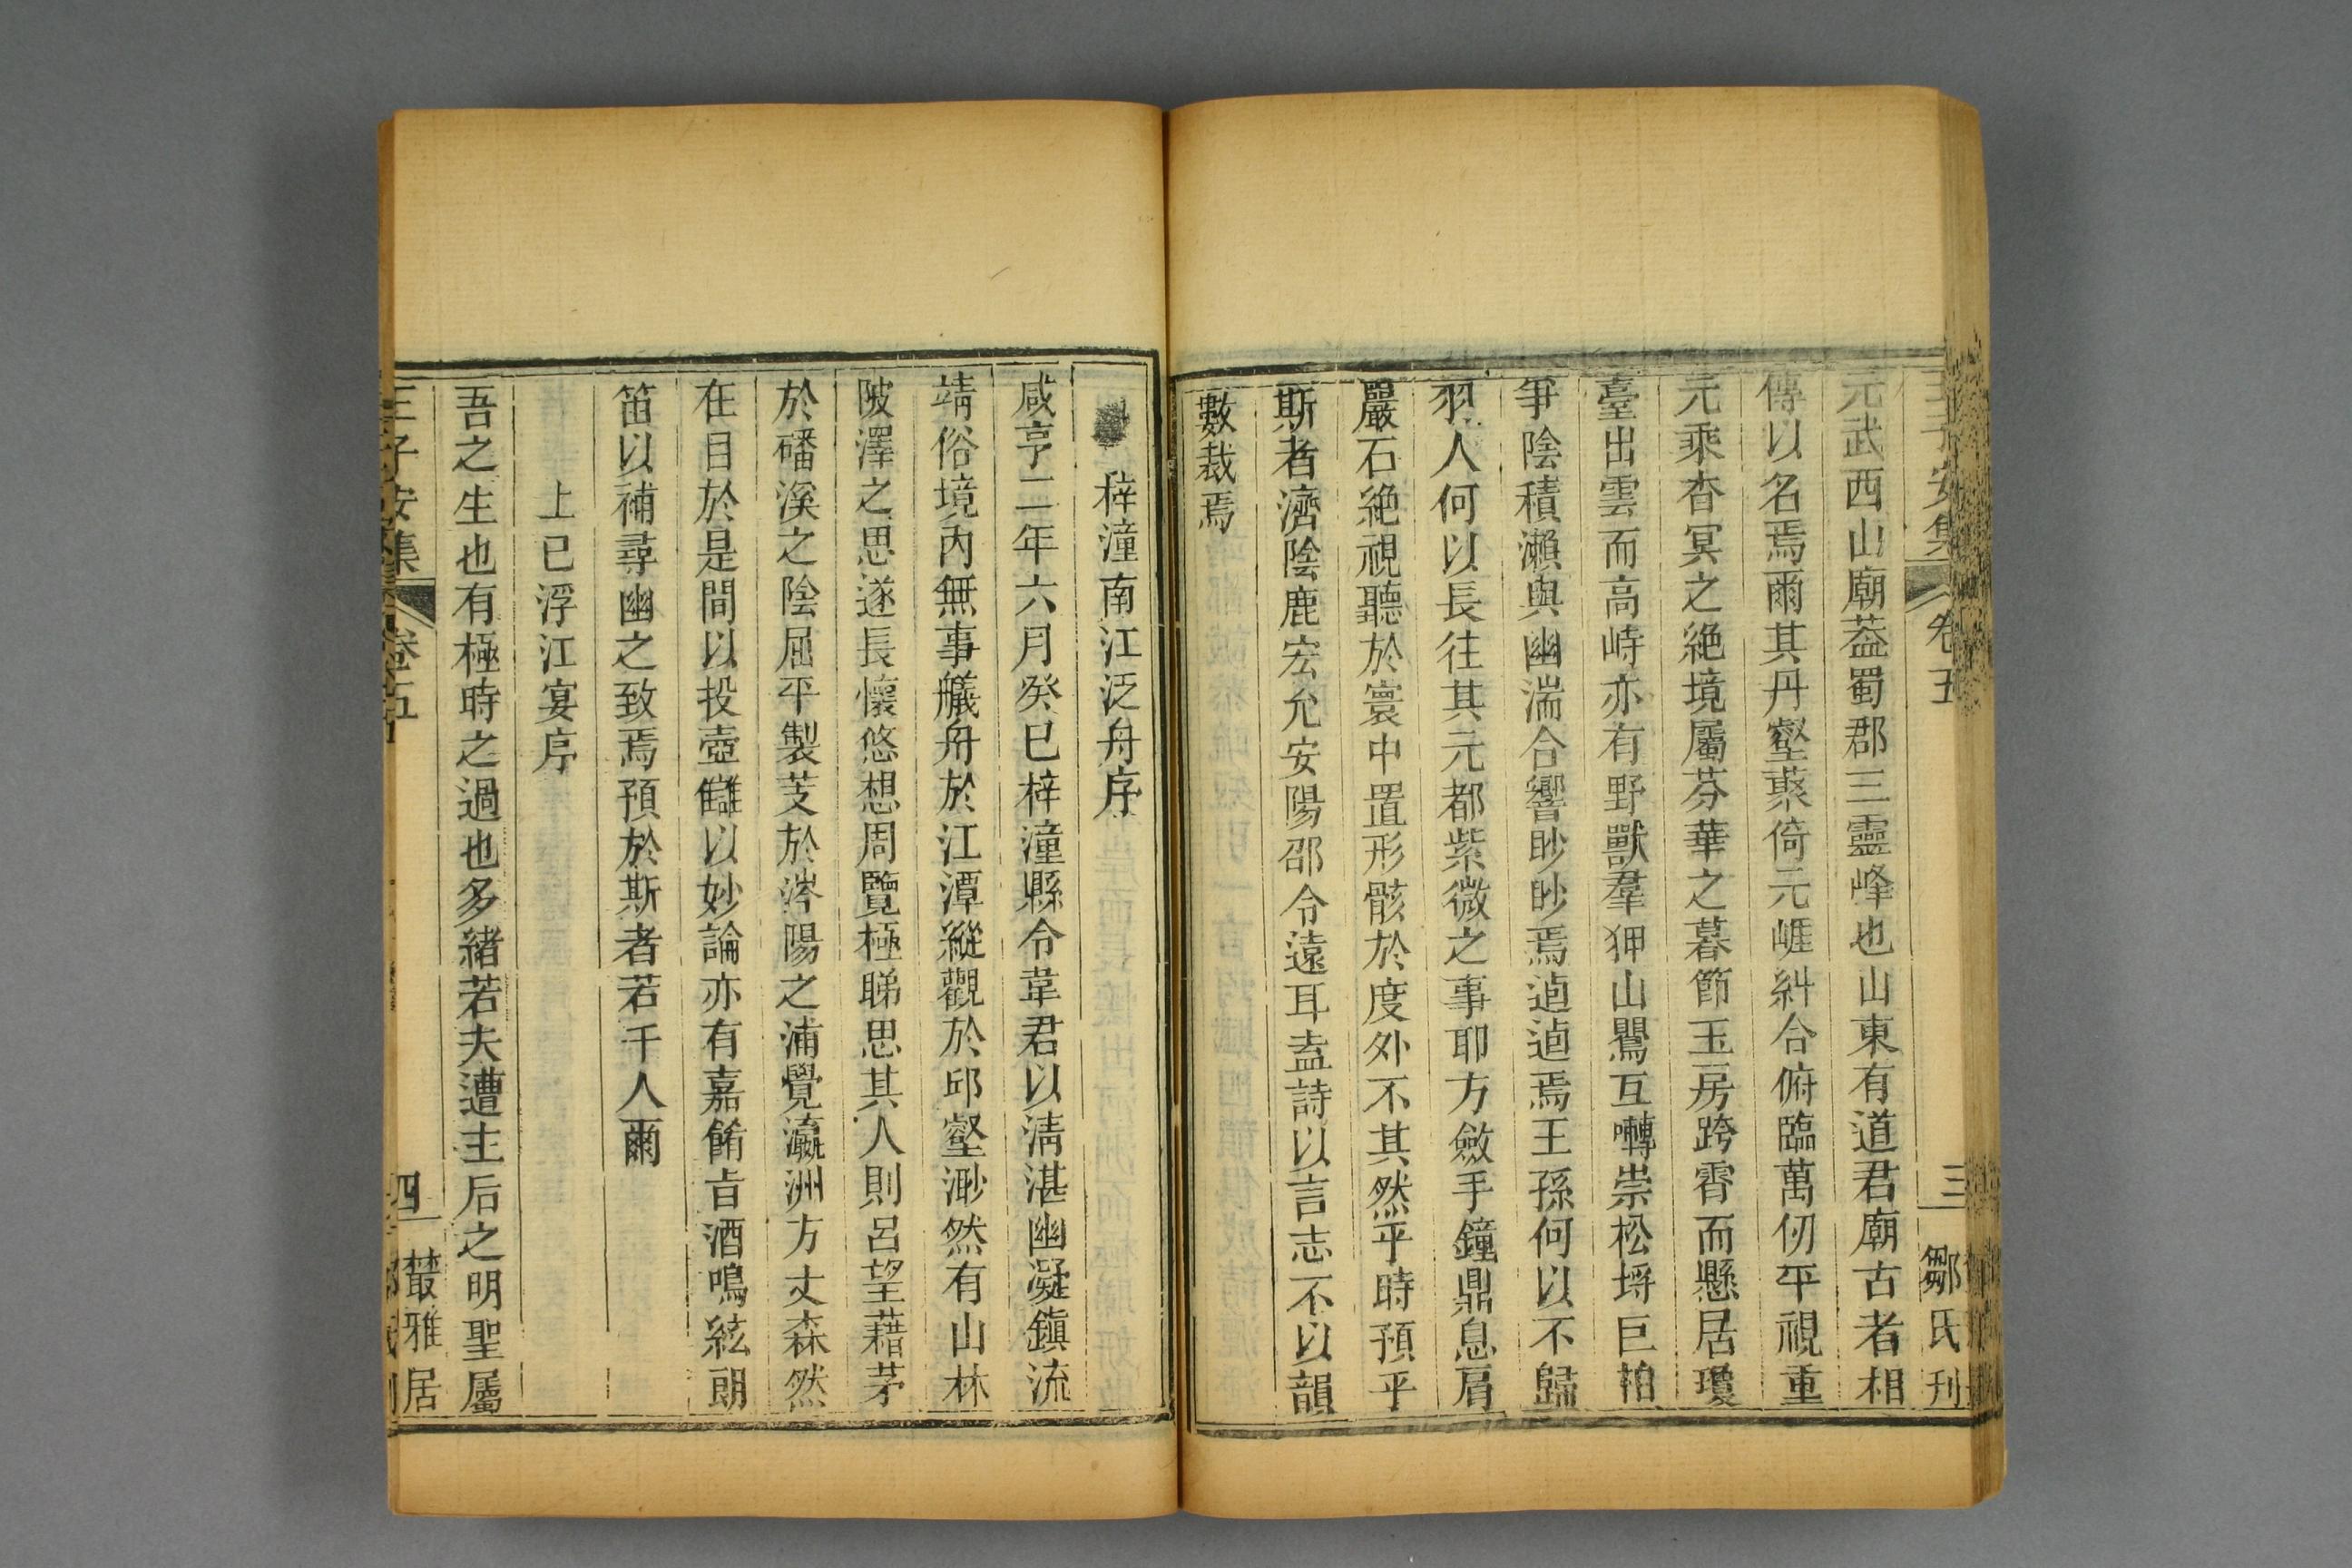 王子安集 卷五 三 鄒氏刊
元武西山廟葢蜀郡三靈峰也山東有道君廟古者相
傳以名焉爾其丹壑叢倚元崕糾合俯臨萬仞平視重
元乘杳冥之絶境屬芬華之暮節玉房跨霄而懸居瓊
臺出雲而高峙亦有野獸羣狎山鸎互囀崇松埓巨柏
爭陰積瀨與幽湍合響眇眇焉逌逌焉王孫何以不歸
羽人何以長往其元都紫微之事耶方斂手鐘鼎息肩
巖石絶視聽於寰中置形骸於度外不其然乎時預乎
斯者濟陰鹿宏允安陽邵令遠耳盍詩以言志不以韻
數裁焉
梓潼南江泛舟序
咸亨二年六月癸巳梓潼縣令韋君以清湛幽凝鎮流
靖俗境內無事艤舟於江潭縱觀於邱壑渺然有山林
陂澤之思遂長懷悠想周覽極睇思其人則呂望藉茅
於磻溪之陰屈平製芰於涔陽之浦覺瀛洲方丈森然
在目於是間以投壺讎以妙論亦有嘉餚旨酒鳴絃朗
笛以補尋幽之致焉預於斯者若干人爾
上巳浮江宴序
吾之生也有極時之過也多緒若夫遭主后之明聖屬
王子安集 卷五 四 叢雅居